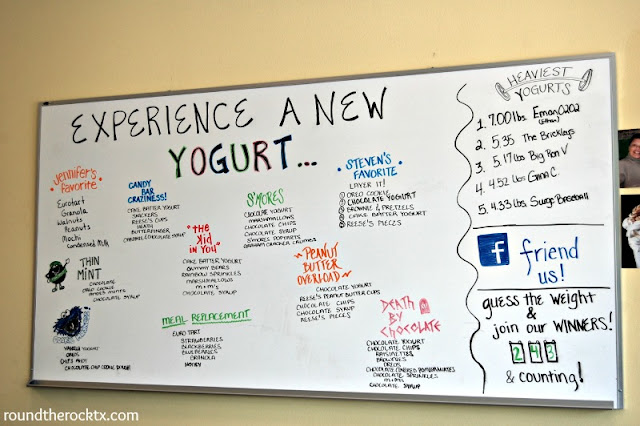 EXPERIENCE A NEW
YOGURT...
Jennifer's
Favorite
Eurotart
Granola
Walnuts
Peanuts
Mochi
Condensed Milk
CANDY
BAR
CRAZINESS!
CAKE BATTER YOGURT
SNICKERS
REESE'S CUPS
HEATH
BUTTERFINGER
CARAMEL CHOCOLATE SYRUP
S'MORES
CHOCOLATE YOGURT
MARSHMALLOWS
CHOCOLATE CHIPS
CHOCOLATE SYRUP
GRAHAM CRACKER CRUMBS
STEVEN'S
FAVORITE
LAYER IT!
① OREO COOKIE
② CHOCOLATE YOGURT
③ BROWNIE & PRETZELS
④ CAKE BATTER YOGURT
⑤ REESE'S PIECES
THIN
MINT
CHOCOLATE
OREO COOKIE
ANDES MINTS
CHOCOLATE SYRUP
"THE
Kid
IN
YOU"
CAKE BATTER YOGURT
GUMMY BEARS
RAINBOW SPRINKLES
MARSHMALLOWS
m&m's
CHOCOLATE SYRUP
~PEANUT
BUTTER
OVERLOAD~
CHOCOLATE YOGURT
REESE'S PEANUT BUTTER CUPS
CHOCOLATE CHIPS
CHOCOLATE SYRUP
REESE'S PIECES
VANILLA YOGURT
OREOS
CHIPS AHOY
CHOCOLATE CHIP COOKIE DOUGH
MEAL REPLACEMENT
EURO TART
STRAWBERRIES
BLACKBERRIES
BLUEBERRIES
GRANOLA
HONEY
DEATH
BY
CHOCOLATE
CHOCOLATE YOGURT
CHOCOLATE CHIPS
BROWNIES
OREOS
CHOCOLATE SPRINKLES
m&m's
CHOCOLATE SYRUP
HEAVIEST
YOGURTS
1. 7.00 lbs Eman0202
2. 5.35 The Bricklays
3. 5.17 lbs Big Ron V
4. 4.52 Lbs Gina C.
5. 4.33 Lbs
f friend
us!
guess the weight
&
join our WINNERS!
243
& counting!
roundtherocktx.com